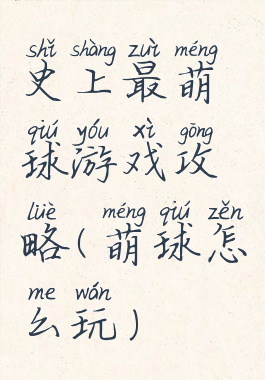 shǐ shàng zuì méng
史上最萌
qiú yóu xì gōng
球游戏攻
lüè méng qiú zěn
略(萌球怎
me wán
么玩)